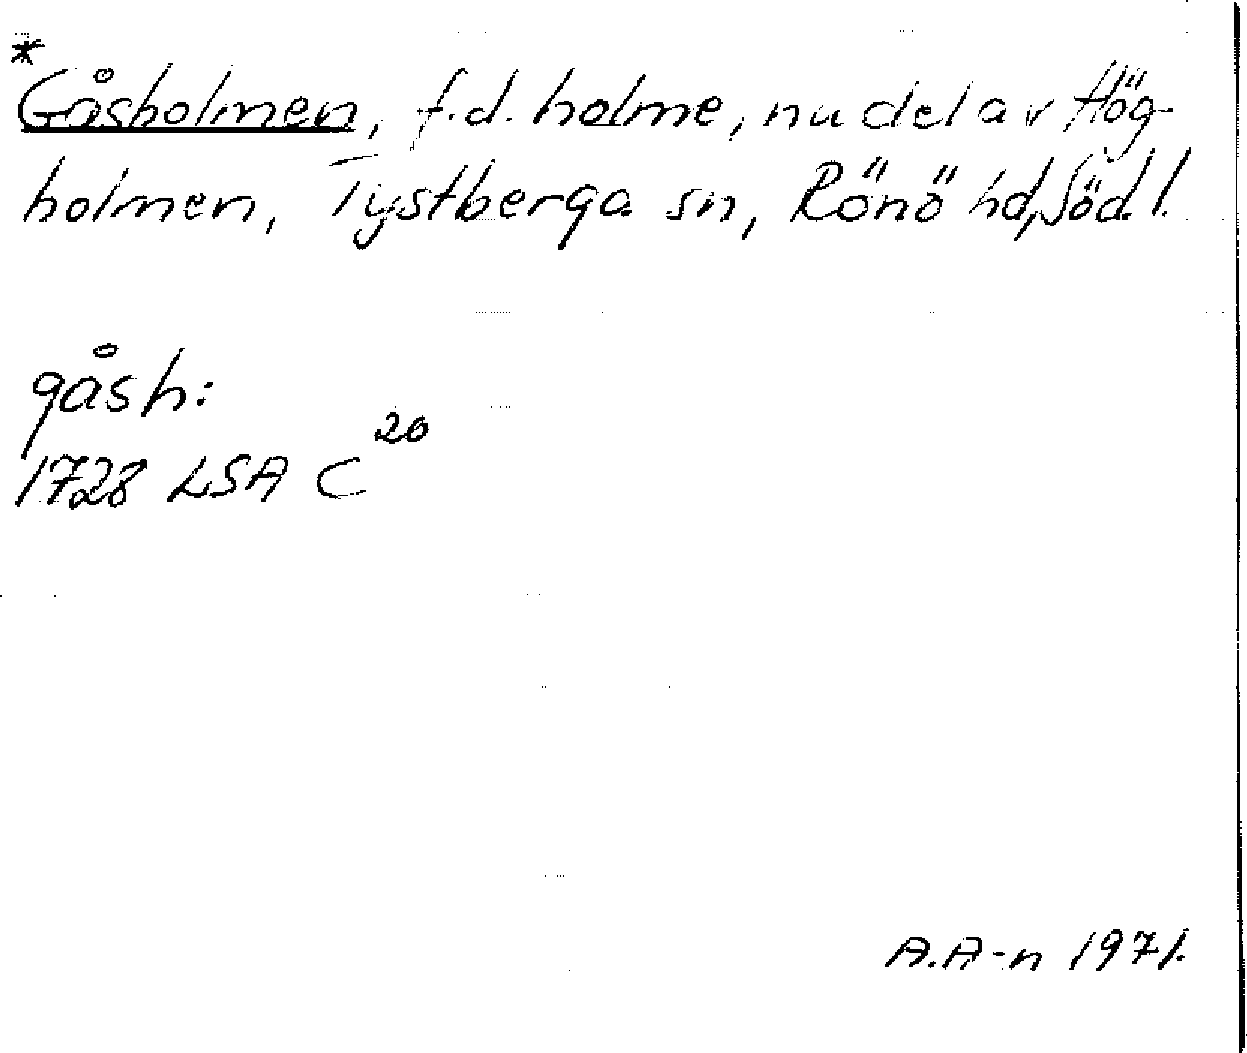 *
Gåsholmen, f.d. holme, nu del av Hög-
holmen, Tystberga sn, Rönö hd, Söd.l.
gåsh:
1728 LSA C 20
A.A-n 1971.